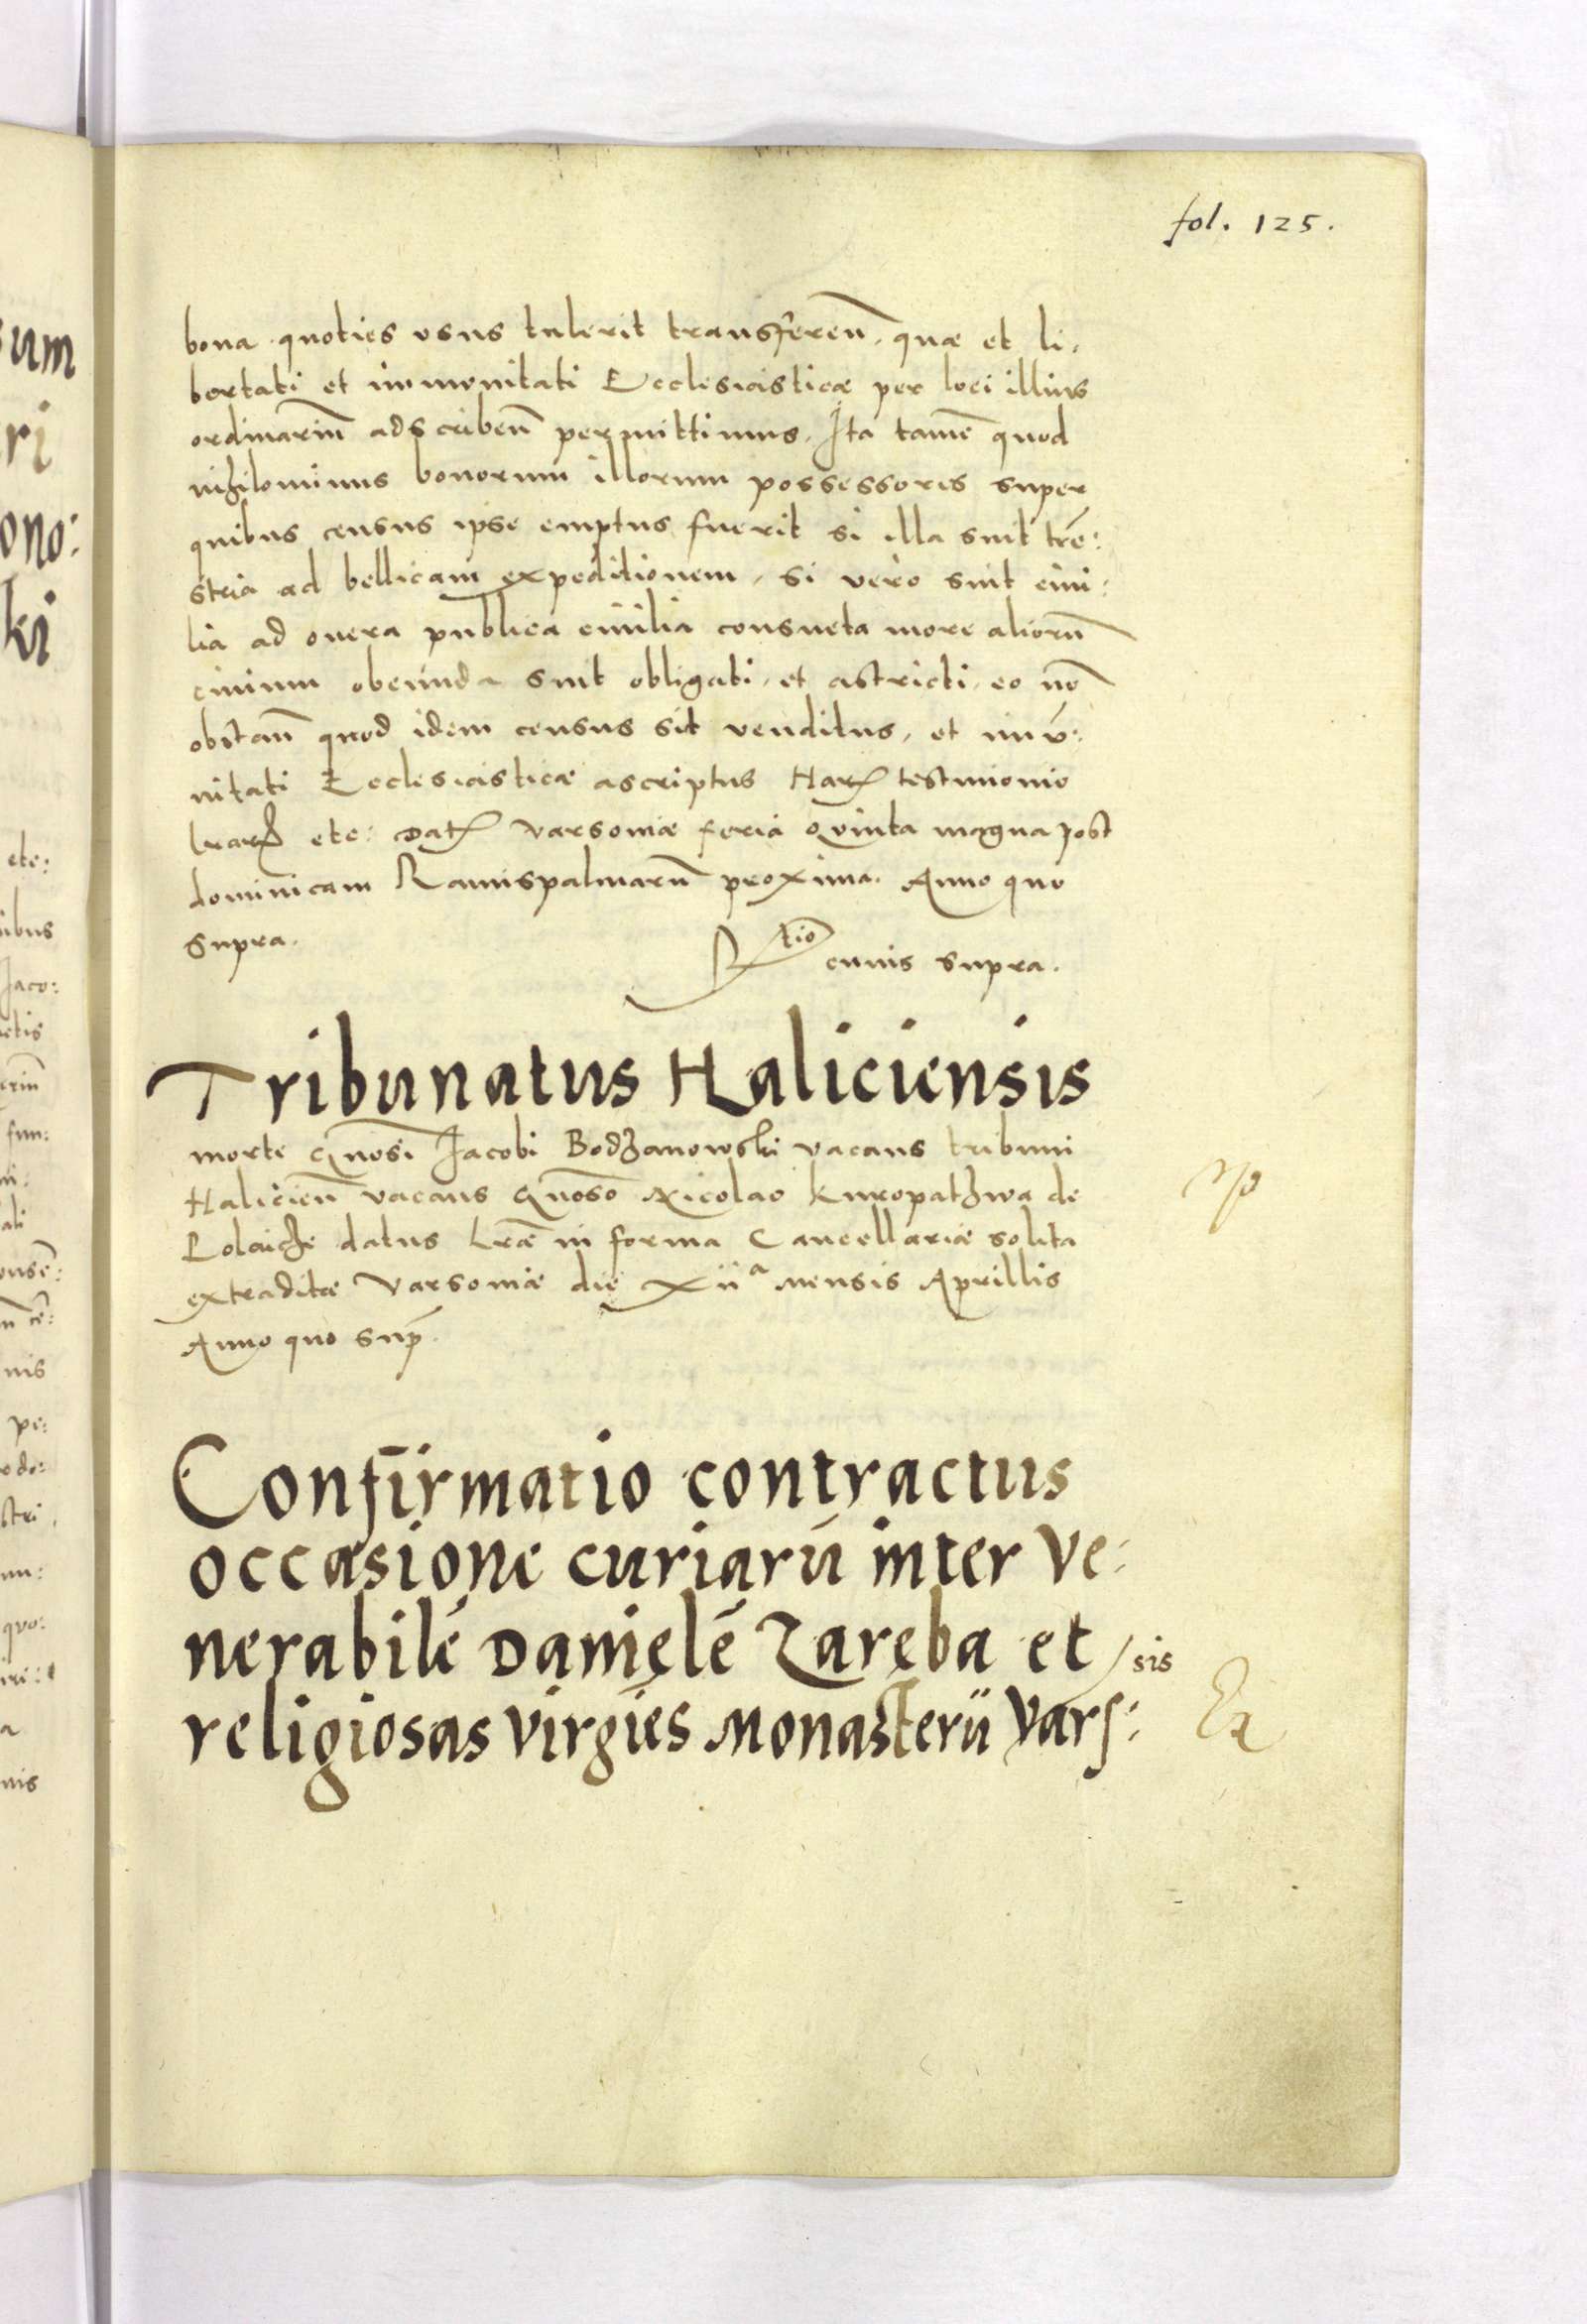 fol. 125.
bona quoties usus tulerit transferen̄. quæ et li:
bertati et immunitati Ecclesiasticæ per loci illius
ordinariū adscriben̄ permittimus. Ita tamē quod
nihilominus bonorum illorum possessores super
quibus census ipse emptus fuerit si illa sint trē:
stria ad bellicam expeditionem, si vero sint ciui:
lia ad onera publica ciuilia consueta more aliorū
ciuium obeunda sint obligati, et astricti, eo nō
obstan̄ quod idem census sit venditus, et immū:
nitati Ecclesiasticæ ascriptus Harꝝ testimonio
lrarꝝ etc: Datꝝ Varsouiæ feria Quinta magna post
dominicam Ramispalmarū proxima. Anno quo
supra.
Rtio cuius supra.
Tribunatus Haliciensis
morte gnosi Jacobi Bodzanowski vacans tribuni
Halicien̄ vacans gnoso Nicolao Kuropathwa de
datus Lræ in forma Cancellariæ solita
extraditæ Varsouiæ die Xiiª mensis Aprillis
Anno quo sup̄.
Confirmatio contractus
occasione curiarū inter Ve:
nerabilē Danielē Zaręba et
religiosas virgīes Monasterii Vars: sis